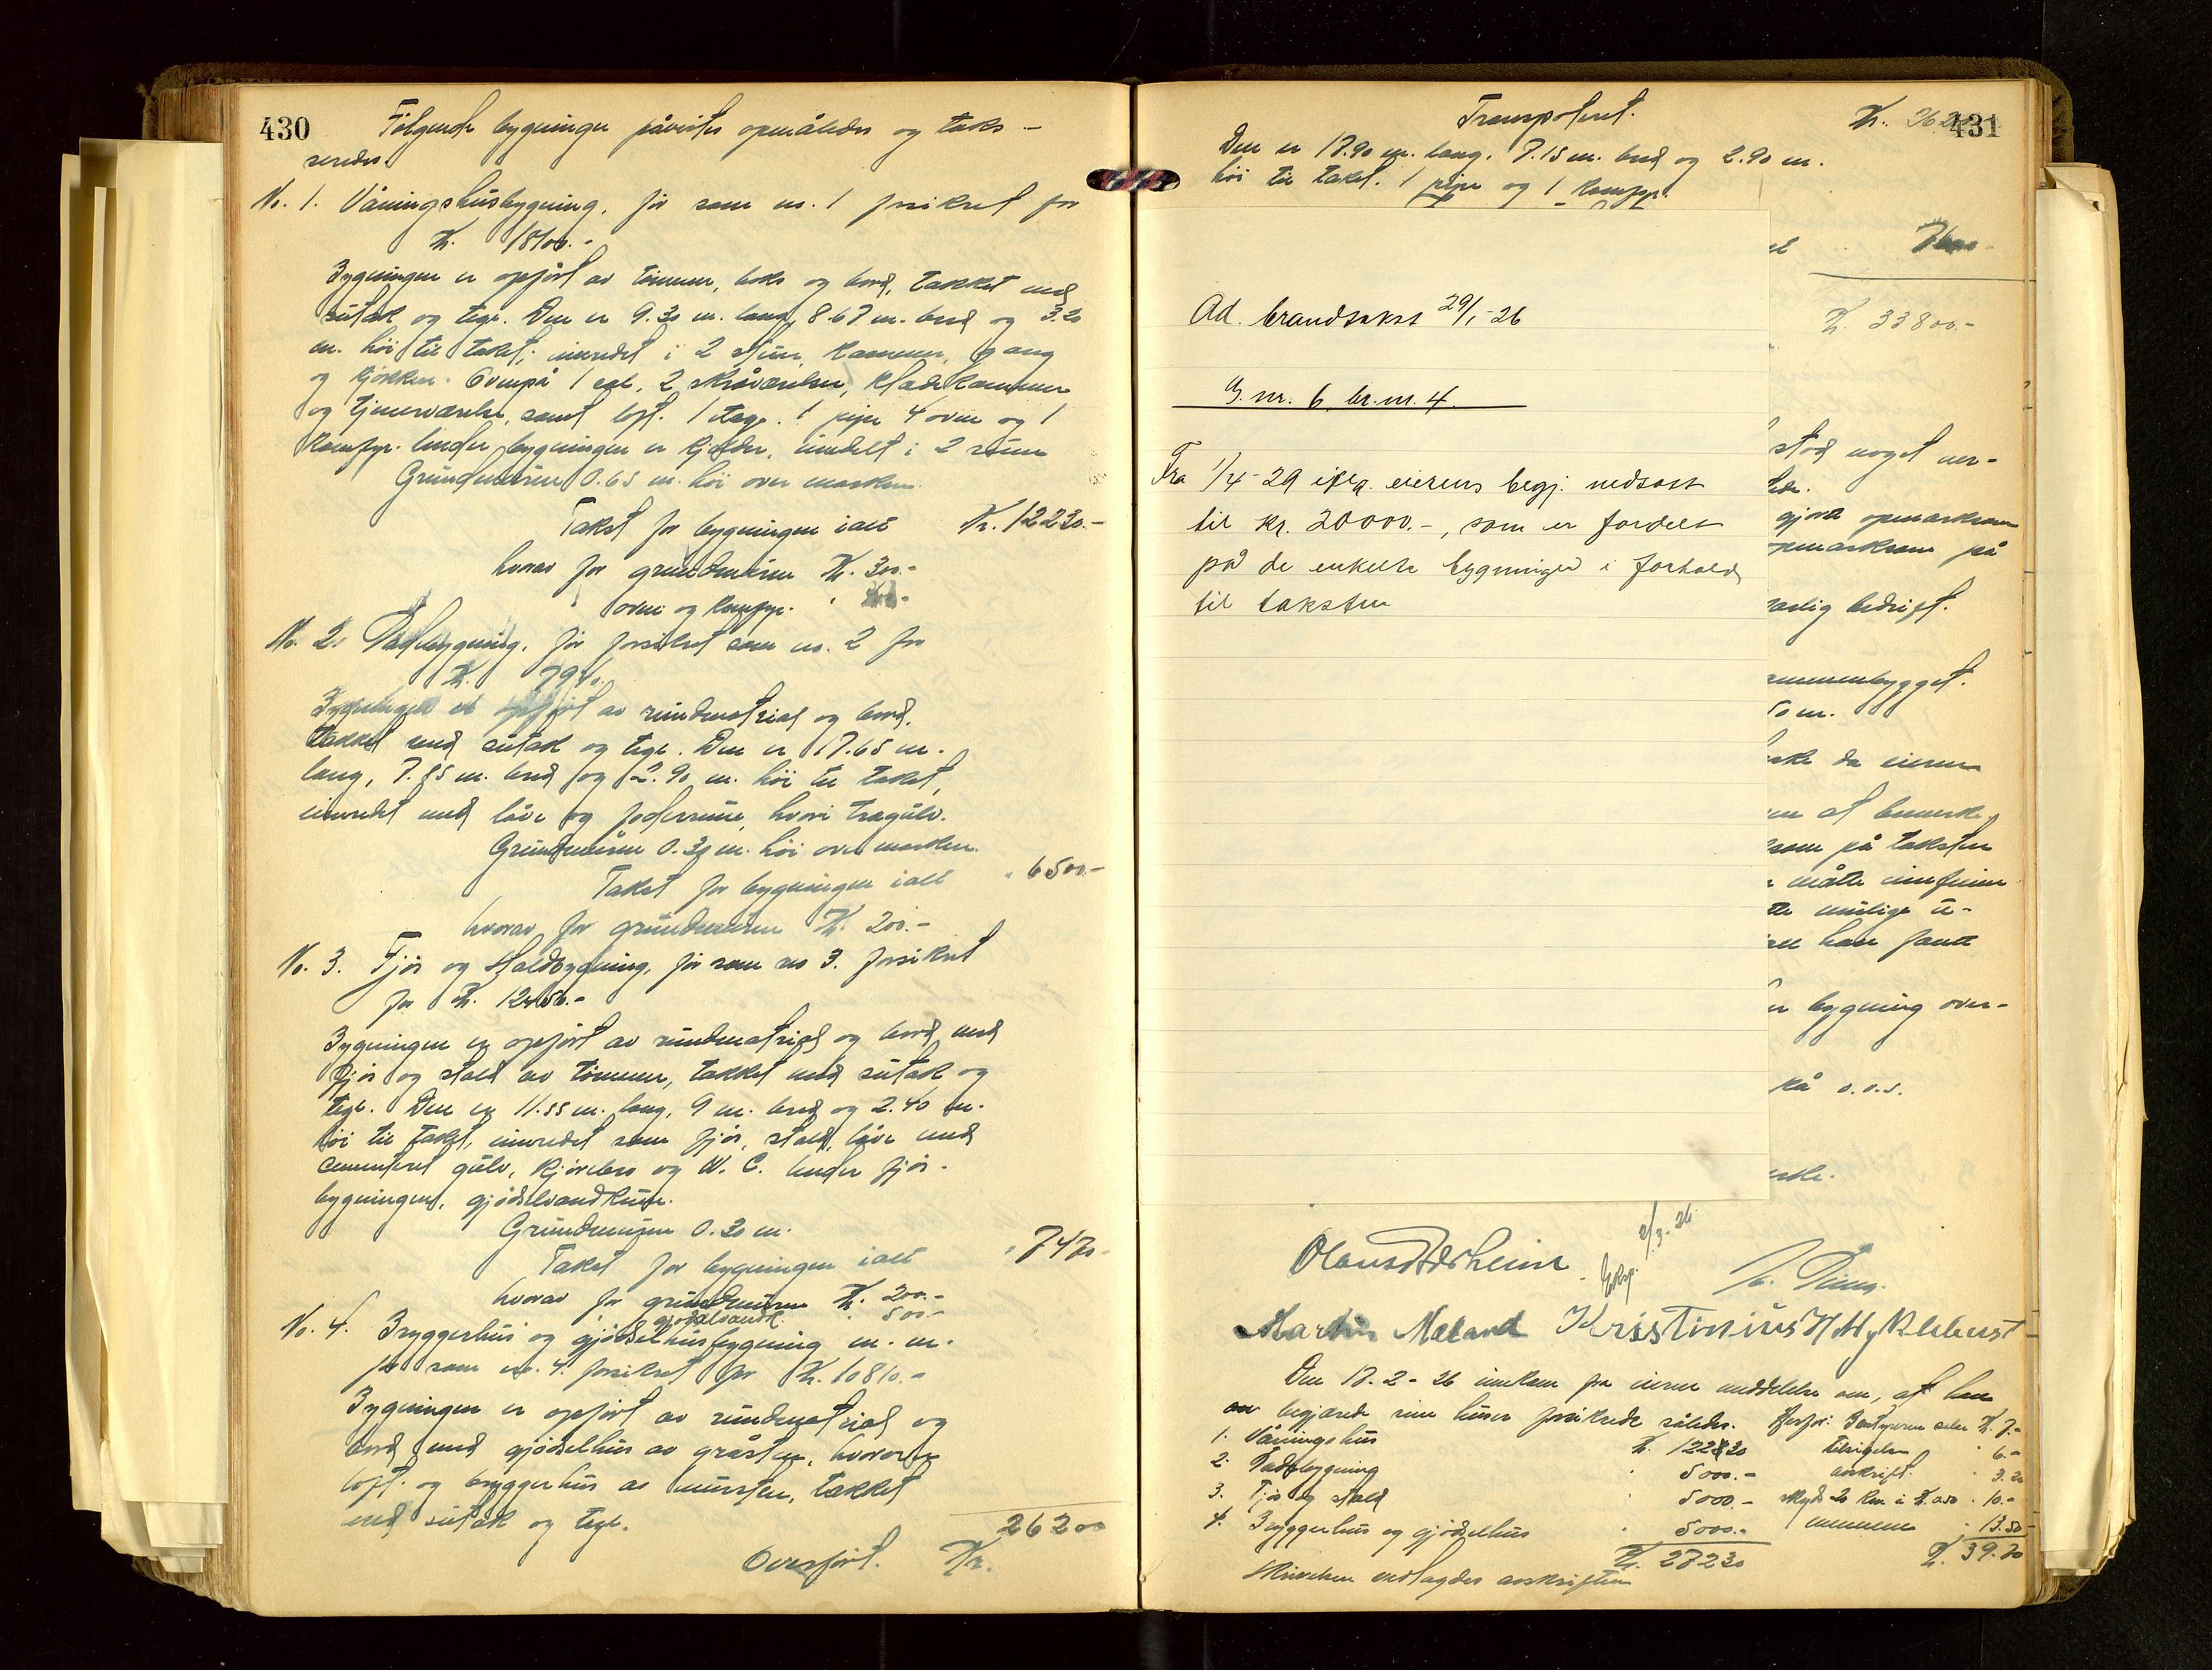 430
Følgende bygninger påvistes opmåledes og taks-
seredes.
No. 1. Våningshusbygning, før som no. 1 forsikret for
Kr. 18100.-
Bygningen er opført av tømmer, boks og bord, takket med
sutak og tegl. Den er 9.30 m. lang, 8.67 m. bred og 3.20
m. høi til taket; innredet i 2 stuer, kammer, gang
og kjøkken. Ovenpå 1 sal, 2 skråværelser, klædekammer
og tjenerværelse, samt loft. 1 etage. 1 pipe 4 ovne og 1
komfyr. Under bygningen er kjelder, inndelt i 2 rum
Grundmuren 0.65 m. høi over marken.
Takst for bygningen ialt Kr. 12230.-
hvorav for grundmuren Kr. 300.-
ovne og komfyr. "
No. 2. Ladebygning, før forsikret som no. 2 for
Kr.
Bygningen er opført av rundmatrial og bord,
takket med sutak og tegl. Den er 17.65 m.
lang, 7.85 m. bred og 2.90 m. høi til taket,
innredet med låve og foderrum, hvori trægulv.
Grundmuren 0.30 m. høi over marken.
Takst for bygningen ialt " 6500.-
hvorav for grundmuren Kr. 200.-
No. 3. Fjøs og staldbygning, før som no 3. forsikret
for Kr. 12450.-
Bygningen er opført av rundmatrial og bord med
fjøs og stald av tømmer, takket med sutak og
tegl. Den er 11.55 m. lang, 9 m. bred og 2.40 m.
høi til taket, innredet som fjøs, stald, låve med
cementeret gulv, kjørebro og W. C. Under fjøs-
bygningen, gjødselvandkum.
Grundmuren 0.30 m.
Takst for bygningen ialt " 7470-
hvorav for grundmuren Kr. 200.-
gjødselvandk. " 500.-
No. 4. Bryggerhus og gjødselhusbygning m. m.
før som no. 4. forsikret for Kr. 10810.-
Bygningen er opført av rundmatrial og
bord med gjødselhus av gråsten, hvorover
loft. og bryggerhus av mursten, takket
med sutak og tegl.
26200
Overført. Kr.
Transporteret. Kr. 431
Den er 17.90 m. lang, 7.15 m. bred og 2.90 m.
høi til taket. 1 pipe og 1 komfyr.
Kr. 33800.-
Ad. brandtakst 29/1-26
G. nr. 6, br. nr. 4.
Fra 1/4-29 iflg. eierens begj. nedsatt
til kr. 20000.-, som er fordelt
på de enkelte bygninger i forhold
til taksten
stod noget ner-
gjort opmerksom
opmerksom på
bedrift.
ammenbygget.
50 m.
da eieren
at bemerke,
som på taksten
måtte innfinne
mulige u-
han fandt
bygning over-
på o.v.s.
Eksp. 2/3-26.
Martin Meland Kristinius H. Myklebust
Den 17.2-26 innkom fra eieren meddelelse om, at han
begjærede sine huser forsikrede således.
1. Våningshus Kr. 12230
2. Ladebygning " 5000.-
3. Fjøs og stald " 5000.-
4. Bryggerhus og gjødselhus " 5000.-
Kr. 27230
Kr. 7.-
tilsigelse " 6.-
avskrift. " 3.20
skyds 20 km à Kr. 0.50 " 10.-
mennene " 13.50
Kr. 39.70
vedlagdes avskriften